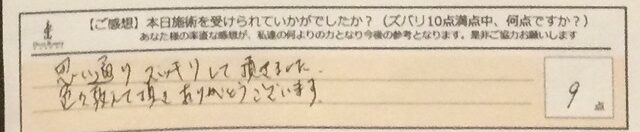 【ご感想】本日施術を受けられていかがでしたか？（ズバリ10点満点中、何点ですか？）
あなた様の率直な感想が、私達の何よりの力となり今後の参考となります。是非ご協力お願いします
思い通りスッキリして頂きました。
色々教えて頂きありがとうございます。
9点